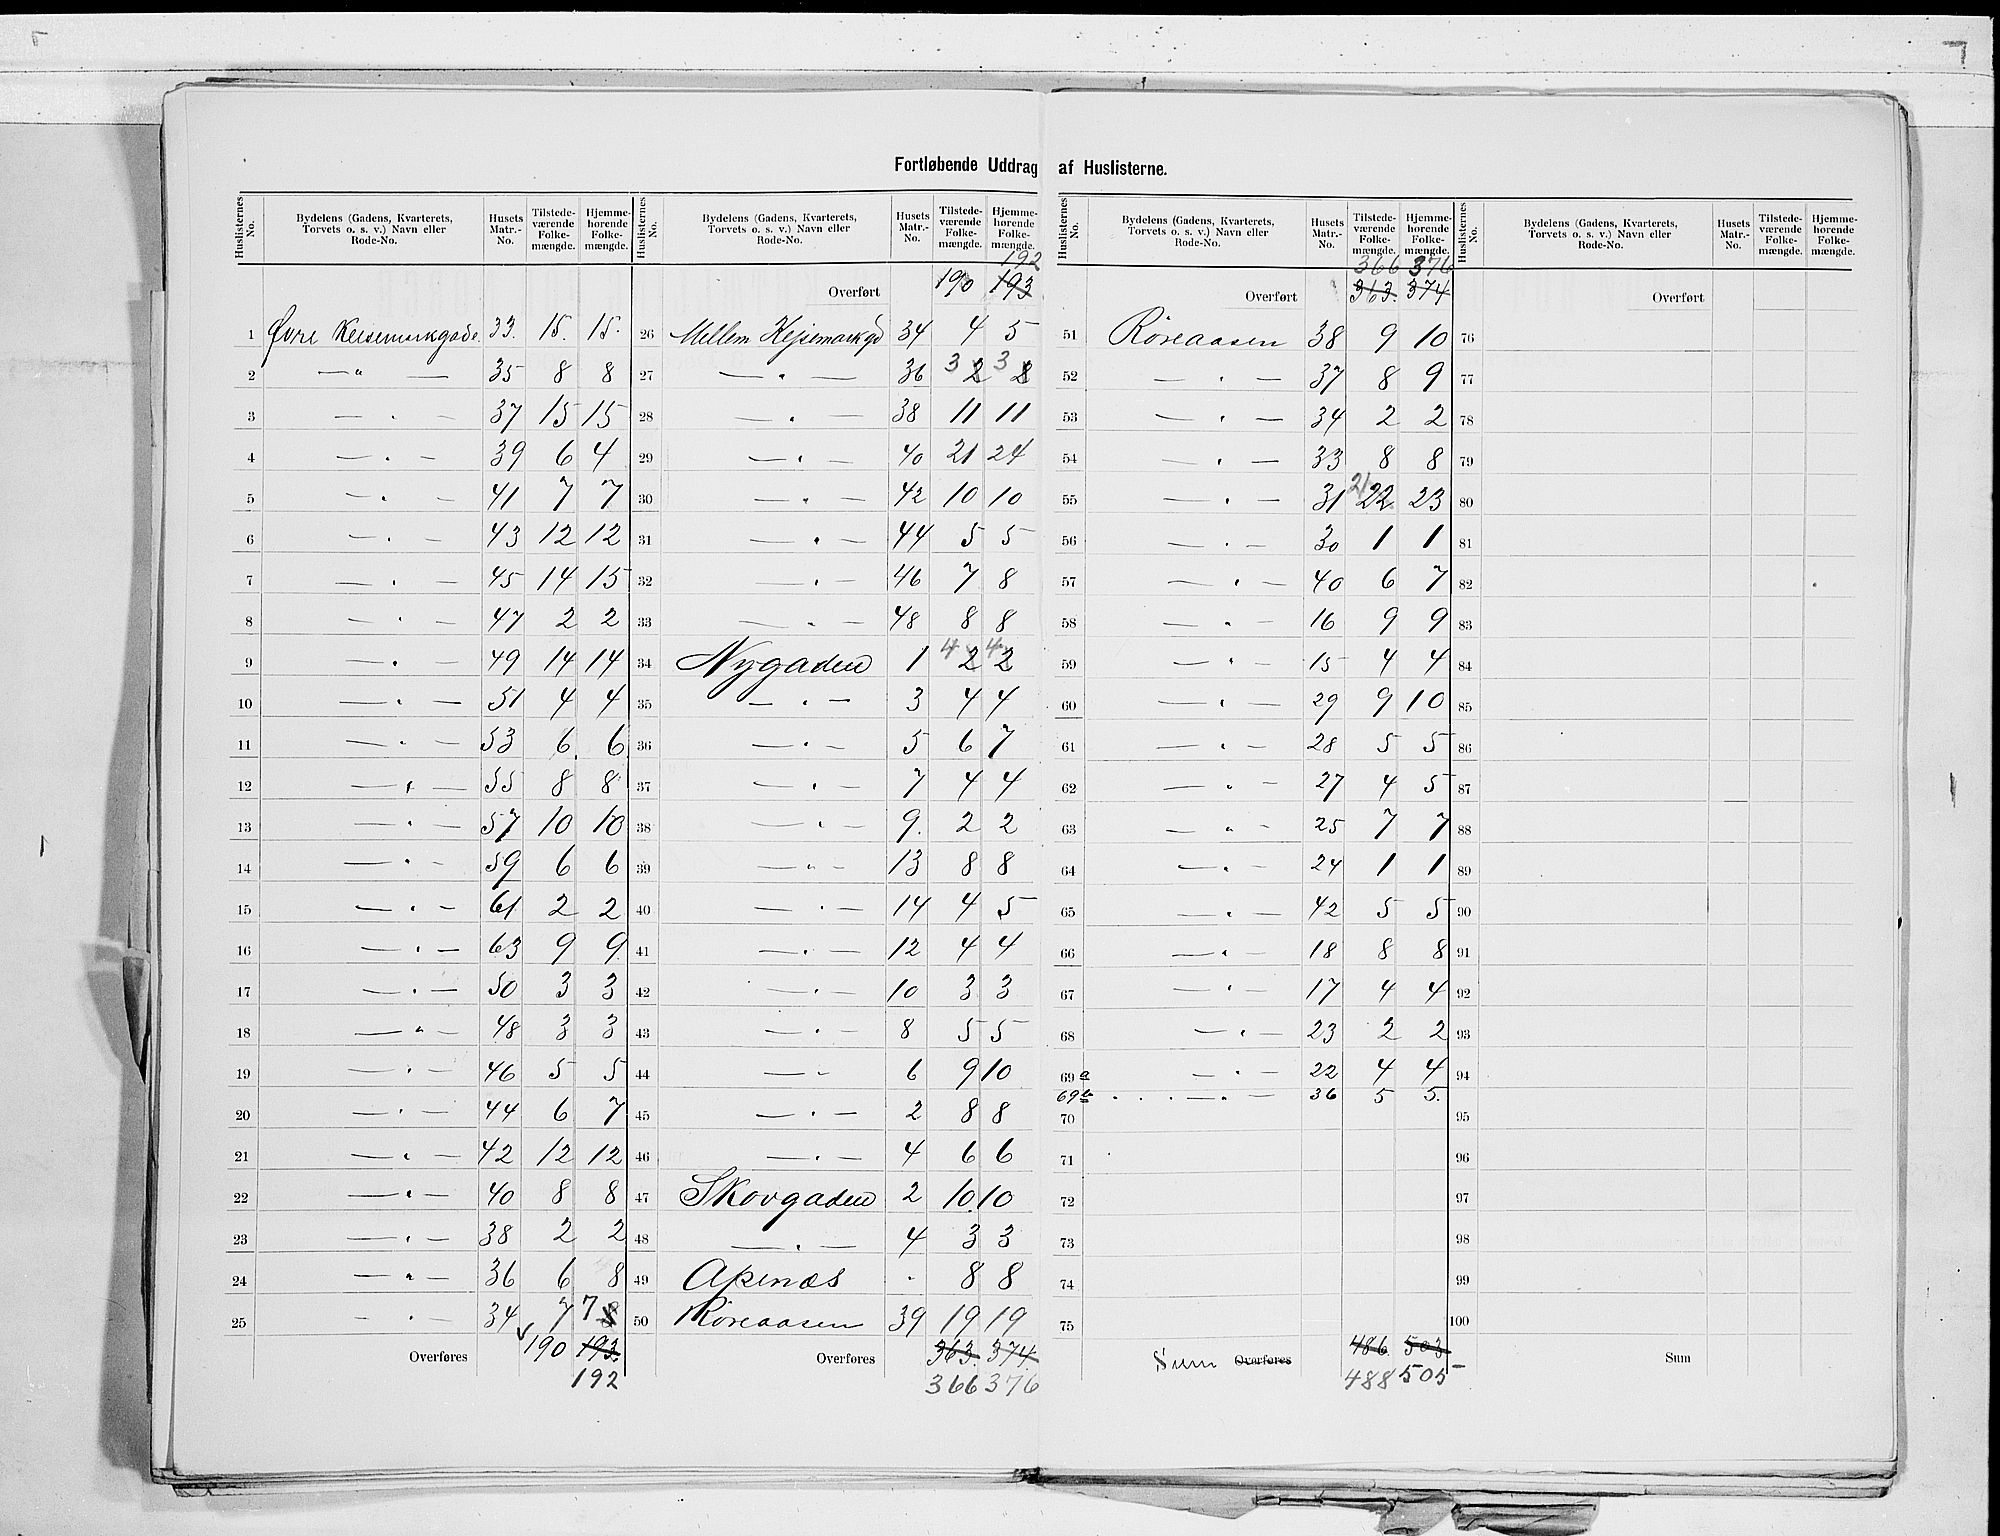 Fortløbende Uddrag af Huslisterne.
Huslisternes No. | Bydelens (Gadens, Kvarterets, Torvets o. s. v.) Navn eller Rode-No. | Husets Matr.-No. | Tilstedeværende Folkemængde. | Hjemmehørende Folkemængde.
1 Øvre Keisemarkgade. 33. 15. 15.
2 — " — 35 8 8
3 — " — 37 15 15
4 — " — 39 6 4
5 — " — 41 7 7
6 — " — 43 12 12
7 — " — 45 14 15
8 — " — 47 2 2
9 — " — 49 14 14
10 — " — 51 4 4
11 — " — 53 6 6
12 — " — 55 8 8
13 — " — 57 10 10
14 — " — 59 6 6
15 — " — 61 2 2
16 — " — 63 9 9
17 — " — 50 3 3
18 — " — 48 3 3
19 — " — 46 5 5
20 — " — 44 6 7
21 — " — 42 12 12
22 — " — 40 8 8
23 — " — 38 2 2
24 — " — 36 6 8
25 — " — 34 7 7 8
Overføres 190 193.
192
Huslisternes No. | Bydelens (Gadens, Kvarterets, Torvets o. s. v.) Navn eller Rode-No. | Husets Matr.-No. | Tilstedeværende Folkemængde. | Hjemmehørende Folkemængde.
192
Overført 190 193
26 Mellem Kejsemarkgd 34 4 5
27 — " — 36 3 2 3 2
28 — " — 38 11 11
29 — " — 40 21 24
30 — " — 42 10 10
31 — " — 44 5 5
32 — " — 46 7 8
33 — " — 48 8 8
34 Nygaden 1 4 2 4 2
35 — " — 3 4 4
36 — " — 5 6 7
37 — " — 7 4 4
38 — " — 9. 2 2
39 — " — 13 8 8
40 — " — 14 4 5
41 — " — 12 4 4
42 — " — 10 3 3
43 — " — 8 5 5
44 — " — 6 9 10
45 — " — 2 8 8
46 — " — 4 6 6
47 Skovgaden 2 10 10
48 — " — 4 3 3
49 Apenæs - 8 8
50 Röreaasen 39 19 19
Overføres 363. 374.
366 376
Huslisternes No. | Bydelens (Gadens, Kvarterets, Torvets o. s. v.) Navn eller Rode-No. | Husets Matr.-No. | Tilstedeværende Folkemængde. | Hjemmehørende Folkemængde.
366 376
Overført 363. 374
51 Röreaasen 38 9 10
52 — " — 37 8 9
53 — " — 34 2 2
54 — " — 33 8 8
55 — " — 31 21 22 23
56 — " — 30 1 1
57 — " — 40 6 7
58 — " — 16 9 9
59 — " — 15 4 4
60 — " — 29 9 10
61 — " — 28 5 5
62 — " — 27 4 5
63 — " — 25 7 7
64 — " — 24 1 1
65 — " — 42 5 5
66 — " — 18 8 8
67 — " — 17 4 4
68 — " — 23 2 2
69 a — " — 22 4 4
69 b — " — 36 5 5.
70
71
72
73
74
75
Sum Overføres 486. 503
488 505
Huslisternes No. | Bydelens (Gadens, Kvarterets, Torvets o. s. v.) Navn eller Rode-No. | Husets Matr.-No. | Tilstedeværende Folkemængde. | Hjemmehørende Folkemængde.
Overført
76
77
78
79
80
81
82
83
84
85
86
87
88
89
90
91
92
93
94
95
96
97
98
99
100
Sum